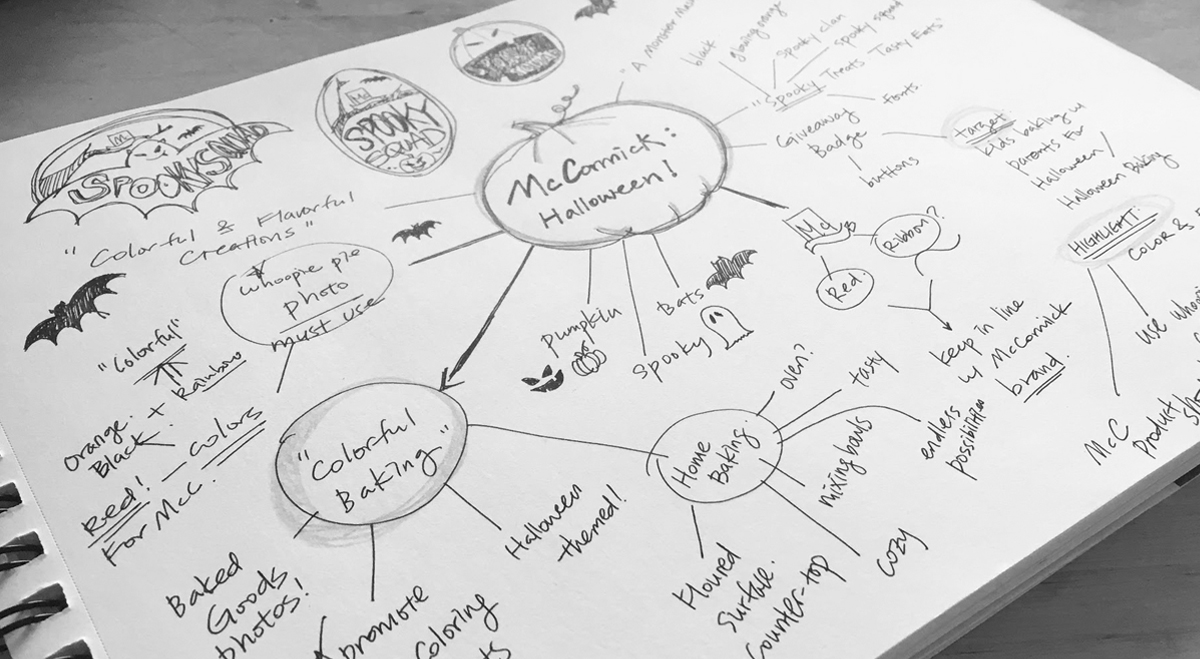 "A Monster
black
glowing
Spooky clan
spooky squad
"Spooky Treats Tasty Eats"
fonts.
Giveaway
Badge
buttons
target:
kids baking w/
parents for
Halloween /
Halloween Baking
HIGHLIGHT:
COLOR &
use
McC
Product
McCormick:
Halloween!
Mc
SPOOKY SQUAD
Mc
SPOOKY
SQUAD
"Colorful & Flavorful
Creations"
whoopie pie
photo
must use
"Colorful"
Orange & + Rainbow
Black.
Red! — colors
For McC.
Pumpkin
Spooky
Bats
Mc
Red.
Ribbon?
keep in line
w/ McCormick
brand.
"Colorful
Baking"
Halloween
themed!
Baked
Goods
photos!
promote
Coloring
Home
Baking.
oven?
tasty
endless
possibilities
mixing bowls
cozy
Floured
Surface.
Counter-top